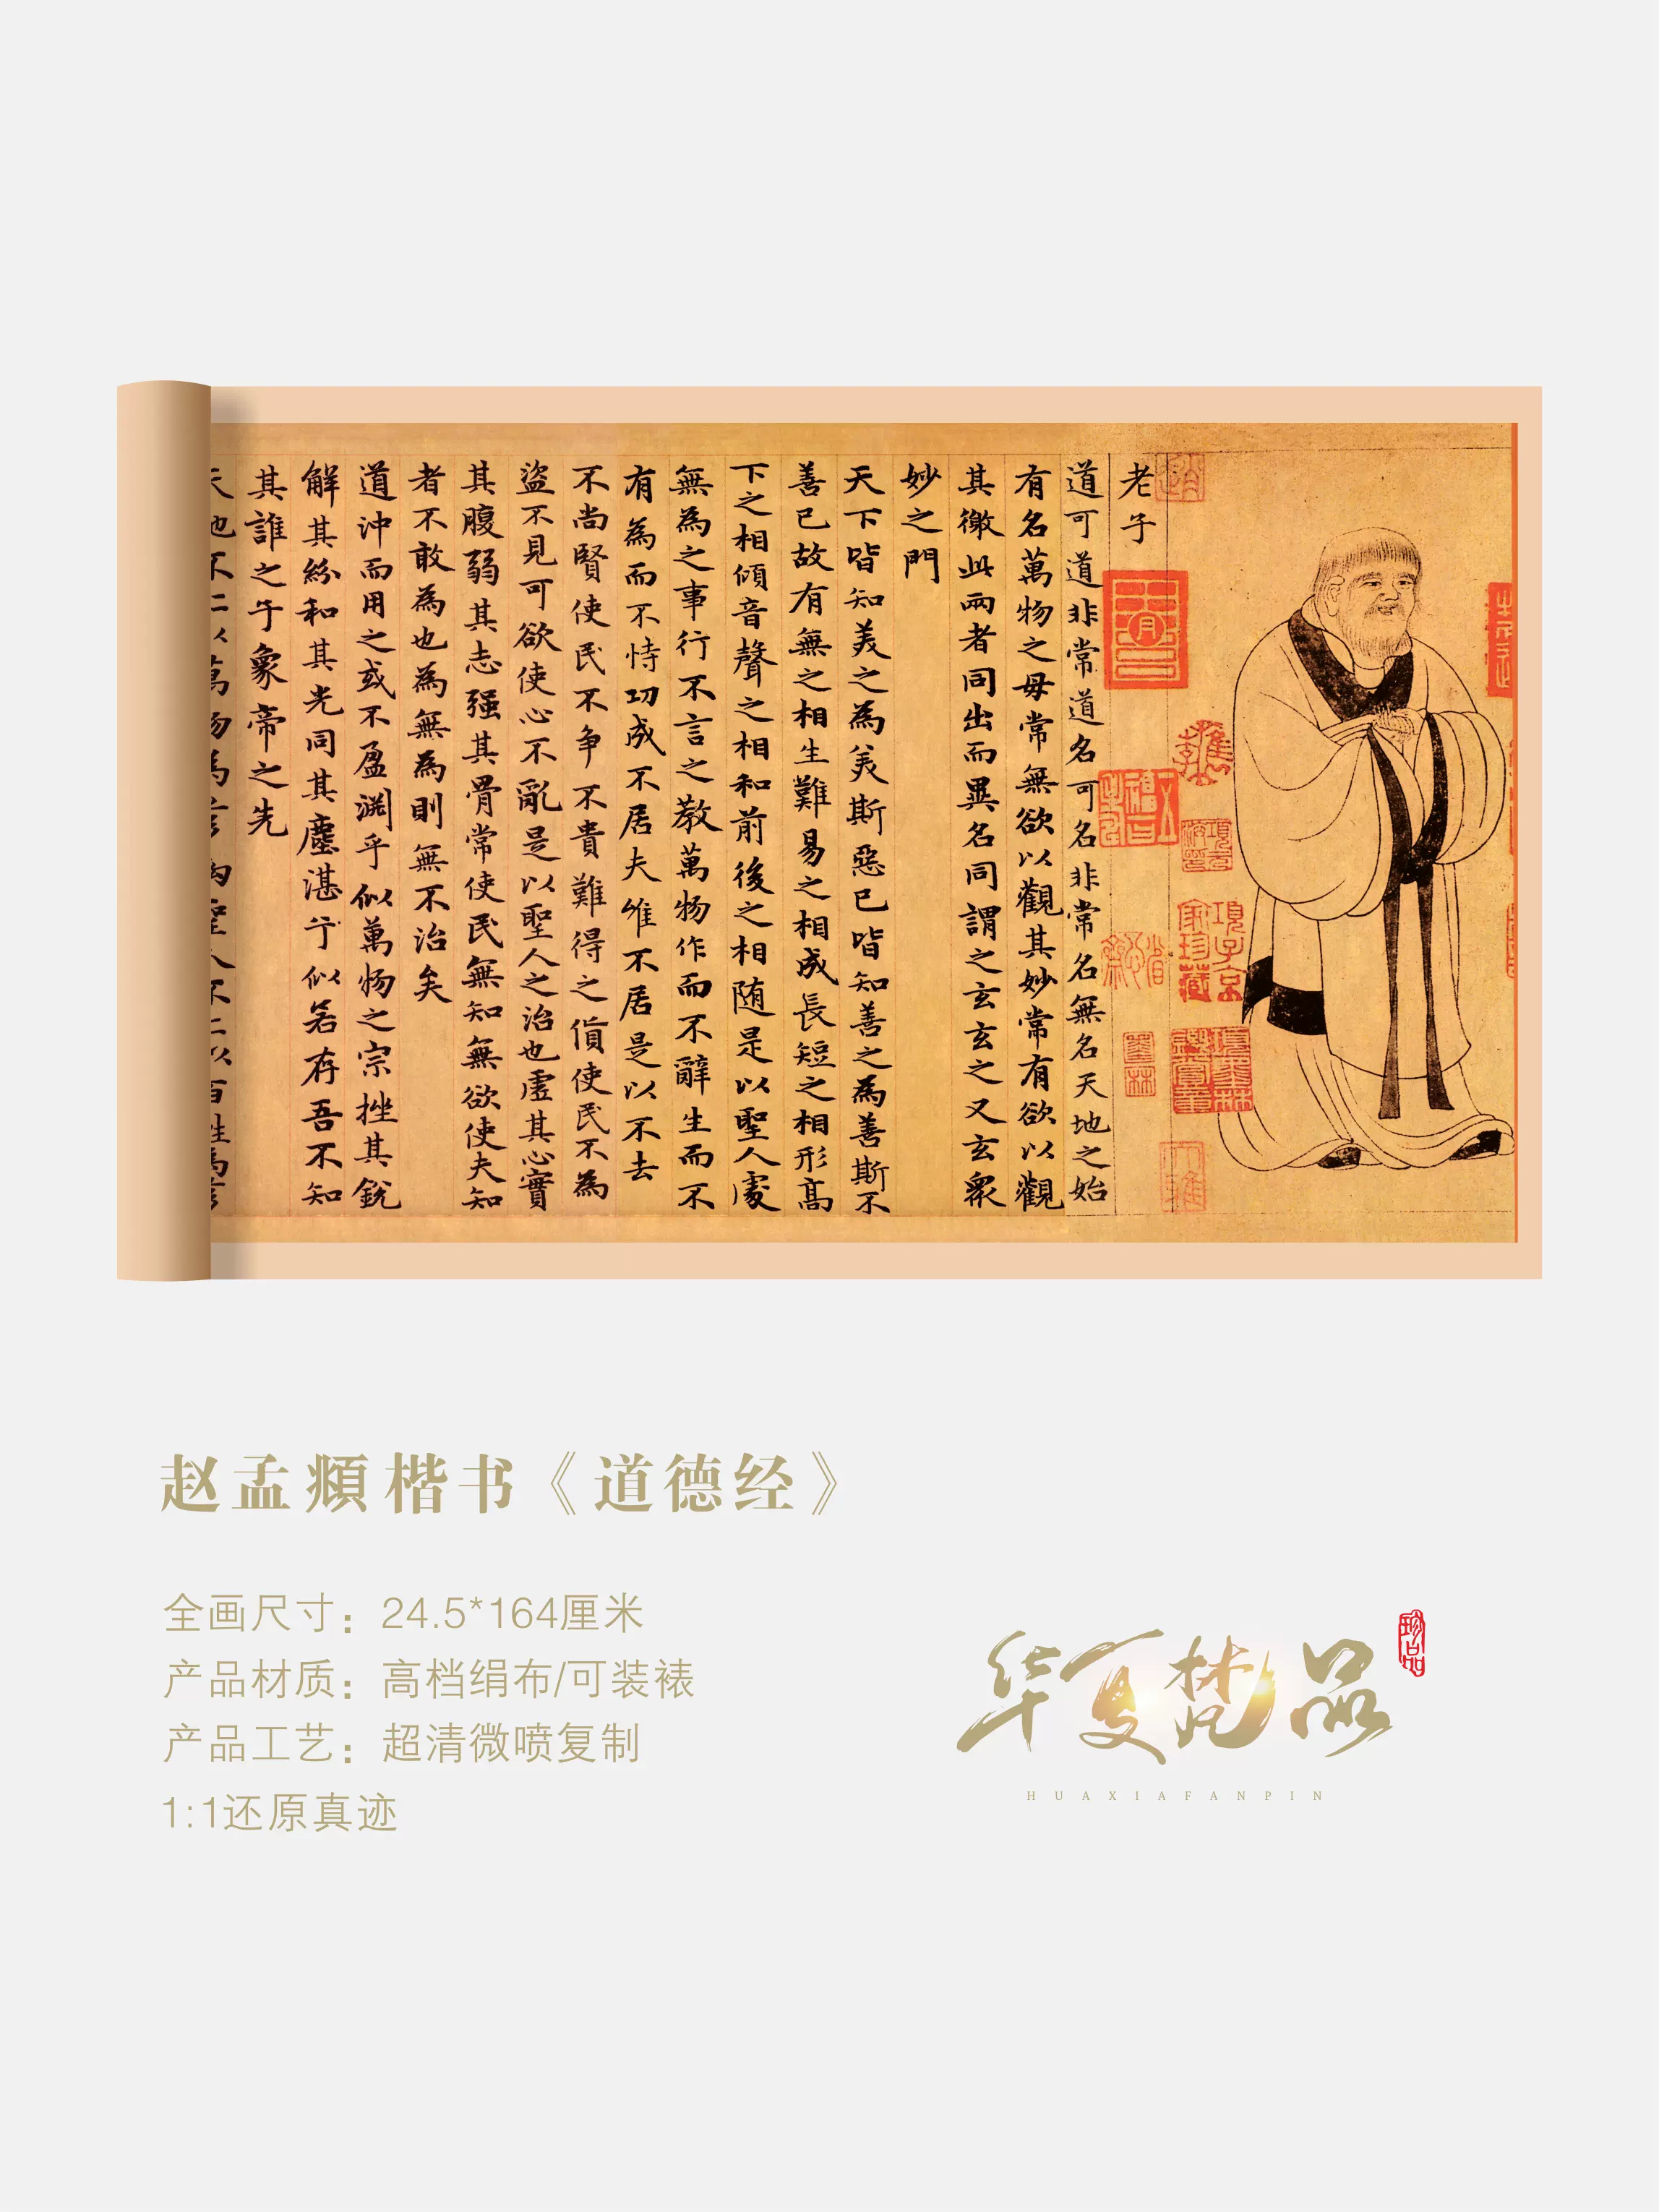 老子
道可道非常道名可名非常名無名天地之始
有名萬物之母常無欲以觀其妙常有欲以觀
其徼此兩者同出而異名同謂之玄玄之又玄衆
妙之門
天下皆知美之為美斯惡已皆知善之為善斯不
善已故有無之相生難易之相成長短之相形高
下之相傾音聲之相和前後之相随是以聖人處
無為之事行不言之教萬物作而不辭生而不
有為而不恃功成不居夫唯不居是以不去
不尚賢使民不争不貴難得之貨使民不為
盜不見可欲使心不亂是以聖人之治也虛其心實
其腹弱其志强其骨常使民無知無欲使夫知
者不敢為也為無為則無不治矣
道沖而用之或不盈淵乎似萬物之宗挫其銳
解其紛和其光同其塵湛兮似若存吾不知
其誰之子象帝之先
赵孟頫楷书《道德经》
全画尺寸：24.5*164厘米
产品材质：高档绢布/可装裱
产品工艺：超清微喷复制
1:1还原真迹
华夏梵品
珍品
HUAXIAFANPIN